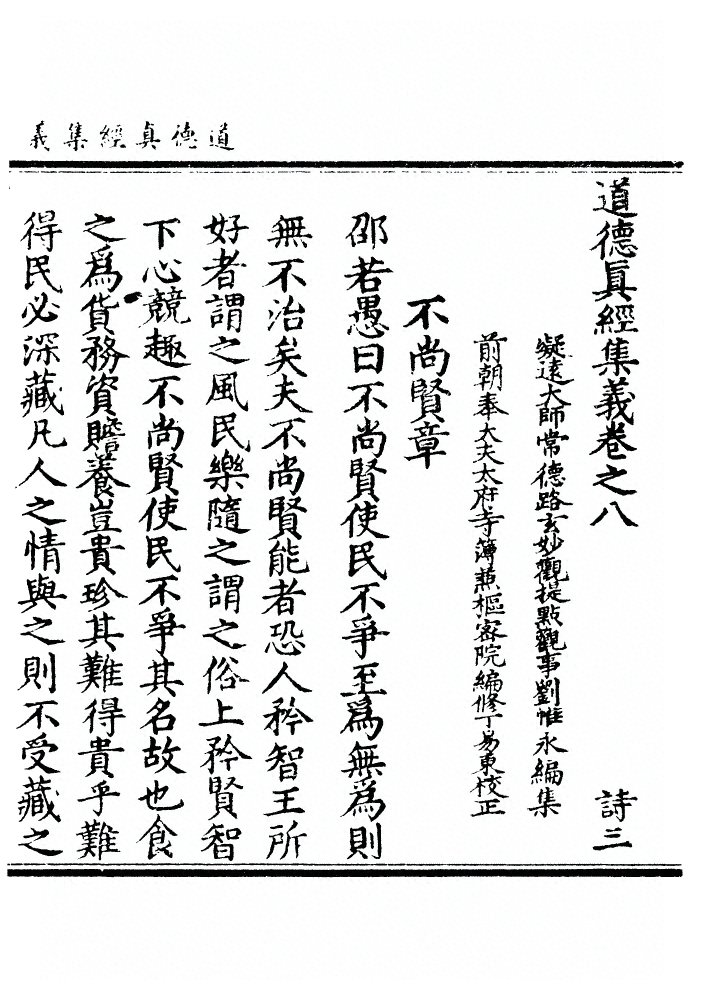 道德真經集義
道德真經集義卷之八 詩三
凝遠大師常德路玄妙觀提點觀事劉惟永編集
前朝奉太夫太府寺簿兼樞密院編修丁易東校正
不尚賢章
邵若愚曰不尚賢使民不爭至爲無爲則
無不治矣夫不尚賢能者恐人矜智王所
好者謂之風民樂隨之謂之俗上矜賢智
下心競趣不尚賢使民不爭其名故也食
之爲貨務資贍養豈貴珍其難得貴乎難
得民必深藏凡人之情與之則不受藏之